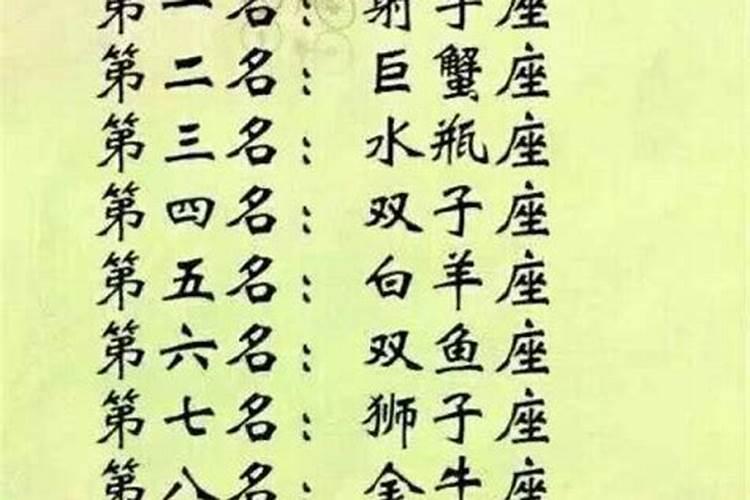 第一名：射手座
第二名：巨蟹座
第三名：水瓶座
第四名：双子座
第五名：白羊座
第六名：双鱼座
第七名：狮子座
第八名：金牛座